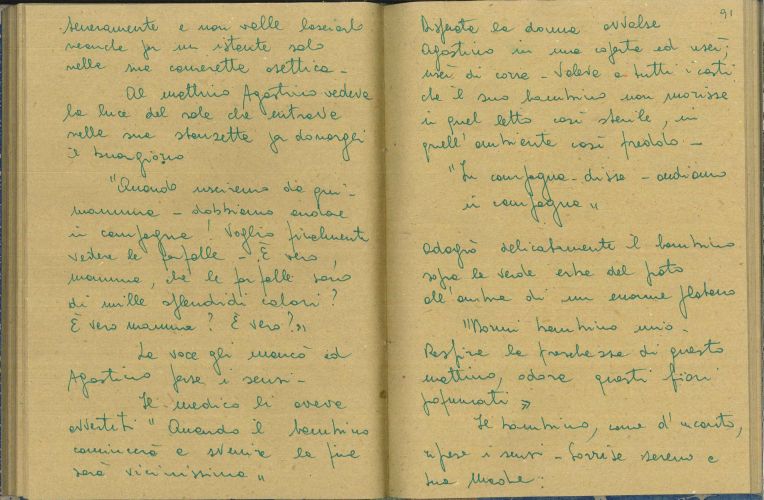 severamente e non volle lasciarlo
neanche per un istante solo
nella sua cameretta asettica -
Al mattino Agostino vedeva
la luce del sole che entrava
nella sua stanzetta per donargli
il buongiorno
"Quando usciremo da qui -
mamma - dobbiamo andare
in campagna! Voglio finalmente
vedere le farfalle - È vero,
mamma, che le farfalle sono
di mille splendidi colori?
È vero mamma? È vero?"
La voce gli mancò ed
Agostino perse i sensi -
Il medico li aveva
avvertiti "Quando il bambino
comincerà a svenire la fine
sarà vicinissima"
91
Disperata la donna avvolse
Agostino in una coperta ed uscì;
uscì di corsa - Voleva a tutti i costi
che il suo bambino non morisse
in quel letto così sterile, in
quell'ambiente così freddo -
"In campagna - disse - andiamo
in campagna"
Adagiò delicatamente il bambino
sopra la verde erba del prato
all'ombra di un enorme platano
"Dormi bambino mio -
Respira la freschezza di questo
mattino, odora questi fiori
profumati"
Il bambino, come d'incanto,
riprese i sensi - Sorrise sereno a
sua Madre: